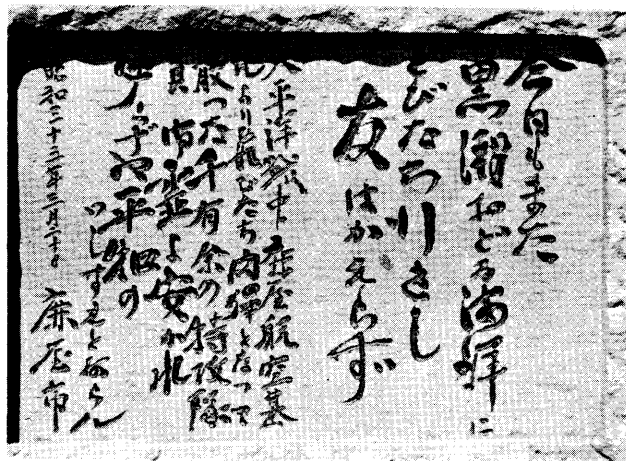 今日もまた
黒潮おどる海洋に
とびたち行きし
友はかえらず
太平洋戦中鹿屋航空基
地より飛びたち肉弾となって
散った千有余の特攻隊
員 御霊よ安かれ
平和の
いしずえとならん
昭和三十三年三月二十日 鹿屋市